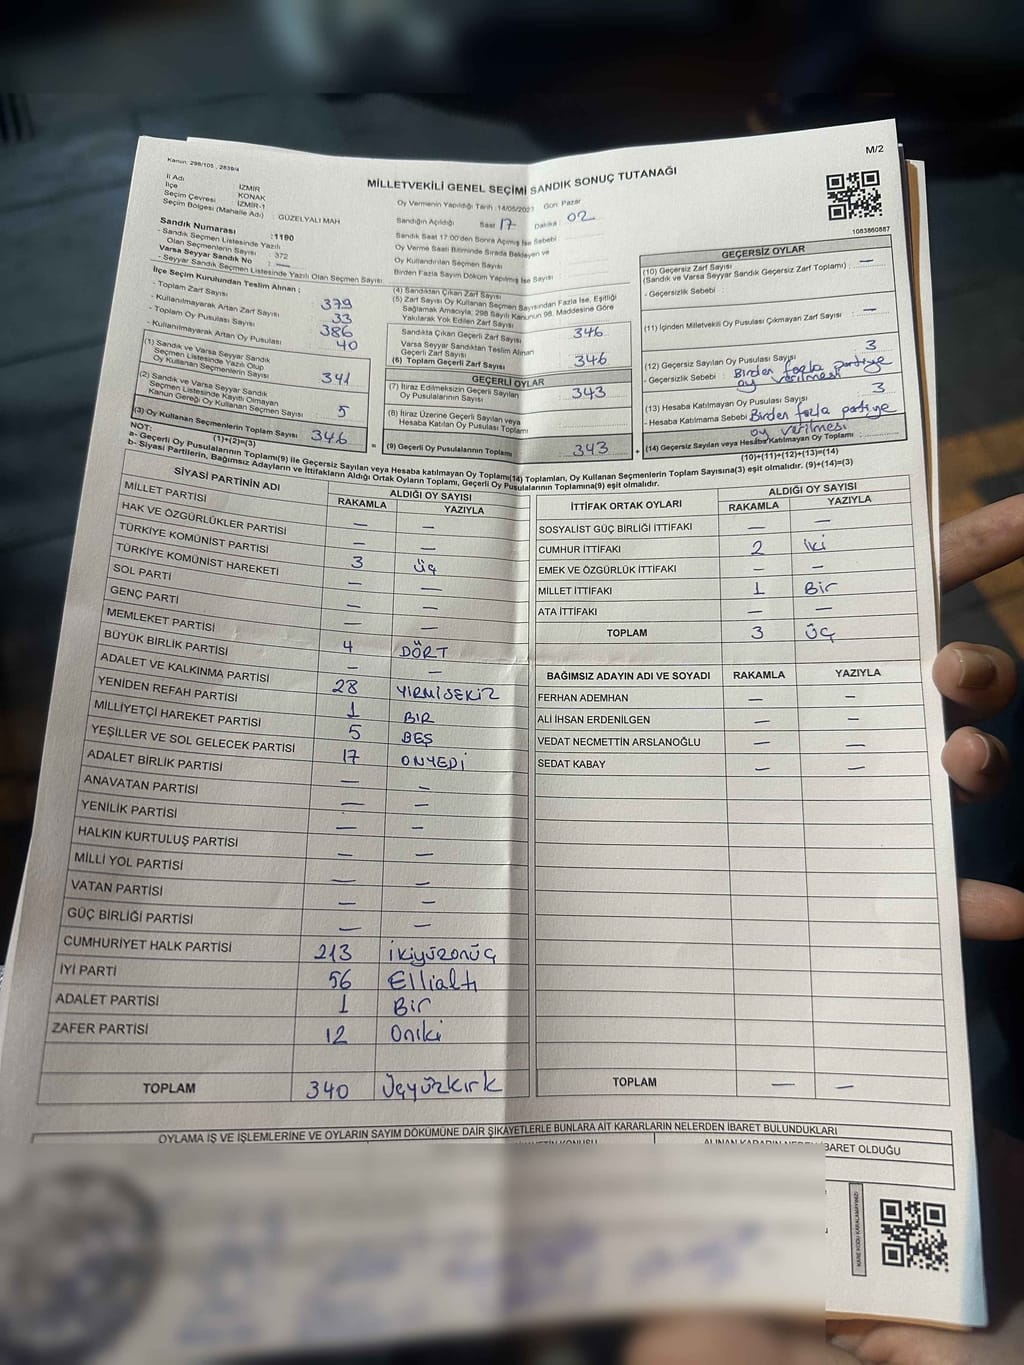 Kanun: 298/105 , 2839/4
M/2
MİLLETVEKİLİ GENEL SEÇİMİ SANDIK SONUÇ TUTANAĞI
İl Adı İZMİR
İlçe KONAK
Seçim Çevresi İZMİR-1
Seçim Bölgesi (Mahalle Adı) : GÜZELYALI MAH
Sandık Numarası :1190
- Sandık Seçmen Listesinde Yazılı
Olan Seçmenlerin Sayısı : 372
Varsa Seyyar Sandık No : —
- Seyyar Sandık Seçmen Listesinde Yazılı Olan Seçmen Sayısı:
İlçe Seçim Kurulundan Teslim Alınan ;
- Toplam Zarf Sayısı 379
- Kullanılmayarak Artan Zarf Sayısı 33
- Toplam Oy Pusulası Sayısı 386
- Kullanılmayarak Artan Oy Pusulası 40
(1) Sandık ve Varsa Seyyar Sandık
Seçmen Listesinde Yazılı Olup
Oy Kullanan Seçmenlerin Sayısı 341
(2) Sandık ve Varsa Seyyar Sandık
Seçmen Listesinde Kayıtlı Olmayan
Kanun Gereği Oy Kullanan Seçmen Sayısı 5
(3) Oy Kullanan Seçmenlerin Toplam Sayısı 346
(1)+(2)=(3)
Oy Vermenin Yapıldığı Tarih :14/05/2023 Gün: Pazar
Sandığın Açıldığı Saat 17 Dakika : 02
Sandık Saat 17:00'den Sonra Açılmış İse Sebebi :
Oy Verme Saati Bitiminde Sırada Bekleyen ve
Oy Kullandırılan Seçmen Sayısı
Birden Fazla Sayım Döküm Yapılmış İse Sayısı :
(4) Sandıktan Çıkan Zarf Sayısı
(5) Zarf Sayısı Oy Kullanan Seçmen Sayısından Fazla İse, Eşitliği
Sağlamak Amacıyla, 298 Sayılı Kanunun 98. Maddesine Göre
Yakılarak Yok Edilen Zarf Sayısı
Sandıkta Çıkan Geçerli Zarf Sayısı 346
Varsa Seyyar Sandıktan Teslim Alınan
Geçerli Zarf Sayısı
(6) Toplam Geçerli Zarf Sayısı 346
GEÇERLİ OYLAR
(7) İtiraz Edilmeksizin Geçerli Sayılan
Oy Pusulalarının Sayısı 343
(8) İtiraz Üzerine Geçerli Sayılan veya
Hesaba Katılan Oy Pusulası Toplamı
= (9) Geçerli Oy Pusulalarının Toplamı 343 +
1083860887
GEÇERSİZ OYLAR
(10) Geçersiz Zarf Sayısı
(Sandık ve Varsa Seyyar Sandık Geçersiz Zarf Toplamı) : —
- Geçersizlik Sebebi :
(11) İçinden Milletvekili Oy Pusulası Çıkmayan Zarf Sayısı : —
(12) Geçersiz Sayılan Oy Pusulası Sayısı 3
- Geçersizlik Sebebi : Birden fazla partiye
oy verilmesi
(13) Hesaba Katılmayan Oy Pusulası Sayısı 3
- Hesaba Katılmama Sebebi Birden fazla partiye
oy verilmesi
(14) Geçersiz Sayılan veya Hesaba Katılmayan Oy Toplamı :
(10)+(11)+(12)+(13)=(14)
NOT:
a- Geçerli Oy Pusulalarının Toplamı(9) ile Geçersiz Sayılan veya Hesaba katılmayan Oy Toplamı(14) Toplamları, Oy Kullanan Seçmenlerin Toplam Sayısına(3) eşit olmalıdır. (9)+(14)=(3)
b- Siyasi Partilerin, Bağımsız Adayların ve İttifakların Aldığı Ortak Oyların Toplamı, Geçerli Oy Pusulalarının Toplamına(9) eşit olmalıdır.
SİYASİ PARTİNİN ADI ALDIĞI OY SAYISI
RAKAMLA YAZIYLA
MİLLET PARTİSİ — —
HAK VE ÖZGÜRLÜKLER PARTİSİ — —
TÜRKİYE KOMÜNİST PARTİSİ 3 Üç
TÜRKİYE KOMÜNİST HAREKETİ — —
SOL PARTİ — —
GENÇ PARTİ — —
MEMLEKET PARTİSİ 4 DÖRT
BÜYÜK BİRLİK PARTİSİ — —
ADALET VE KALKINMA PARTİSİ 28 YİRMİSEKİZ
YENİDEN REFAH PARTİSİ 1 BİR
MİLLİYETÇİ HAREKET PARTİSİ 5 BEŞ
YEŞİLLER VE SOL GELECEK PARTİSİ 17 ONYEDİ
ADALET BİRLİK PARTİSİ — —
ANAVATAN PARTİSİ — —
YENİLİK PARTİSİ — —
HALKIN KURTULUŞ PARTİSİ — —
MİLLİ YOL PARTİSİ — —
VATAN PARTİSİ — —
GÜÇ BİRLİĞİ PARTİSİ — —
CUMHURİYET HALK PARTİSİ 213 ikiyüzonüç
İYİ PARTİ 56 Ellialtı
ADALET PARTİSİ 1 Bir
ZAFER PARTİSİ 12 Oniki
TOPLAM 340 Üçyüzkırk
İTTİFAK ORTAK OYLARI ALDIĞI OY SAYISI
RAKAMLA YAZIYLA
SOSYALİST GÜÇ BİRLİĞİ İTTİFAKI — —
CUMHUR İTTİFAKI 2 iki
EMEK VE ÖZGÜRLÜK İTTİFAKI — —
MİLLET İTTİFAKI 1 Bir
ATA İTTİFAKI — —
TOPLAM 3 Üç
BAĞIMSIZ ADAYIN ADI VE SOYADI RAKAMLA YAZIYLA
FERHAN ADEMHAN — —
ALİ İHSAN ERDENİLGEN — —
VEDAT NECMETTİN ARSLANOĞLU — —
SEDAT KABAY — —
TOPLAM — —
OYLAMA İŞ VE İŞLEMLERİNE VE OYLARIN SAYIM DÖKÜMÜNE DAİR ŞİKAYETLERLE BUNLARA AİT KARARLARIN NELERDEN İBARET BULUNDUKLARI
İBARET OLDUĞU
KARE KODU KARALAMAYINIZ!